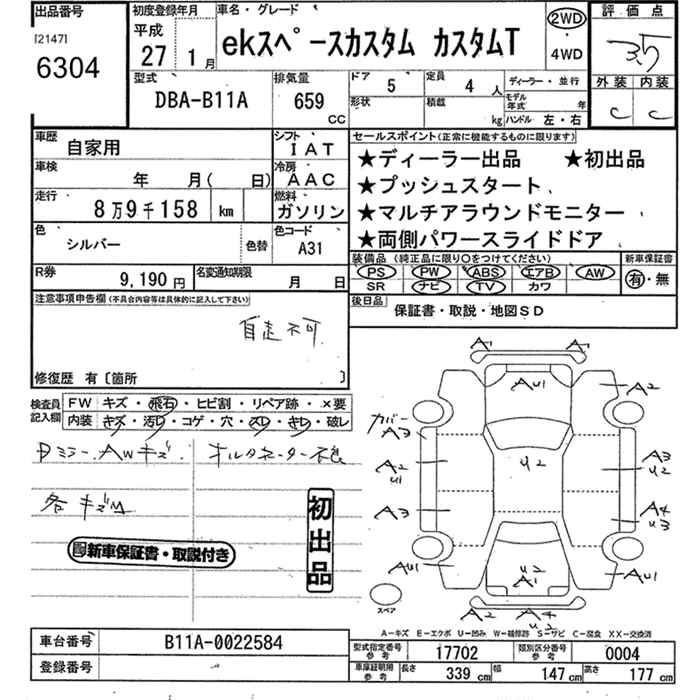 出品番号
[2147]
6304
初度登録年月
平成
27年 1月
車名・グレード
ekスペースカスタム カスタムT
2WD
・
4WD
評価点
3.5
外装 内装
C C
型式
DBA-B11A
排気量
659
CC
ドア 5
形状
定員 4 人
積載 kg
ディーラー・並行
モデル年式 年
ハンドル 左・右
車歴
自家用
シフト
IAT
車検
年 月( 日)
冷房
AAC
走行
8万9千158 km
燃料
ガソリン
色
シルバー
色替
色コード
A31
R券
9,190円
名変通知期限
月 日
セールスポイント(正常に機能するものに限ります)
★ディーラー出品 ★初出品
★プッシュスタート
★マルチアラウンドモニター
★両側パワースライドドア
装備品 (純正品に限り○をつけてください)
PS PW ABS エアB AW
SR ナビ TV カワ
新車保証書
有・無
後日品
保証書・取説・地図SD
注意事項申告欄(不具合内容等は具体的に記入して下さい)
自走不可
修復歴 有〔箇所 〕
検査員記入欄
FW キズ・飛石・ヒビ割・リペア跡・×要
内装 キズ・汚レ・コゲ・穴・スレ・キレ・破レ
Dミラー、AWキズ
オルタネーター不良
各キズU
初出品
新車保証書・取説付き
A1 A1
AU1
A2
カバー
A3
A2
U1
U2
A3
U2
A3
A4
U3
AU1
U2
A1
AU1
スペア
A2 A4
U2
A-キズ E-エクボ U-凹み W-補修跡 S-サビ C-腐食 XX-交換済
車台番号
B11A-0022584
登録番号
型式指定番号
参考
17702
類別区分番号
参考
0004
車庫証明用
参考
長さ 339 cm 幅 147 cm 高さ 177 cm